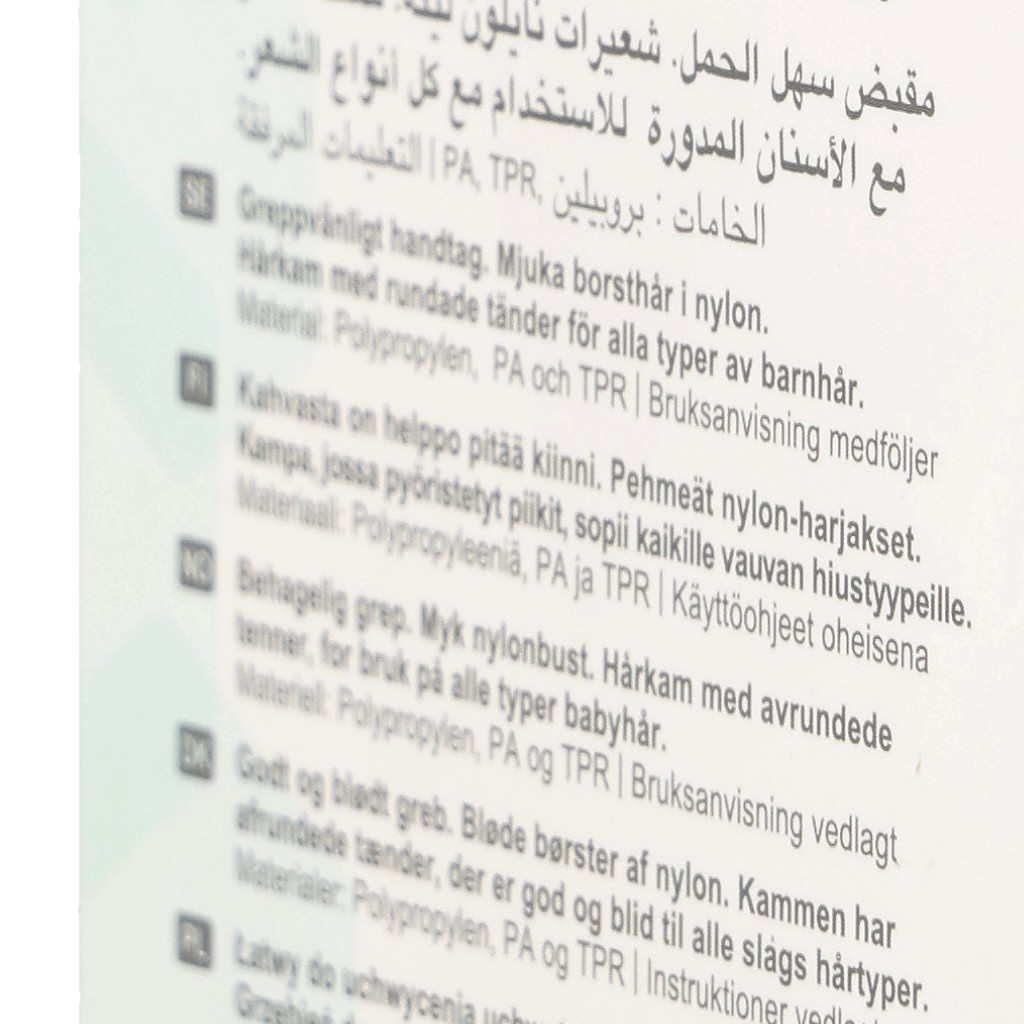 مقبض سهل الحمل. شعيرات نايلون لينة.
مع الأسنان المدورة للاستخدام مع كل أنواع الشعر.
الخامات : بروبيلين, PA, TPR | التعليمات المرفقة
SE Greppvänligt handtag. Mjuka borsthår i nylon.
Hårkam med rundade tänder för alla typer av barnhår.
Material: Polypropylen, PA och TPR | Bruksanvisning medföljer
FI Kahvasta on helppo pitää kiinni. Pehmeät nylon-harjakset.
Kampa, jossa pyöristetyt piikit, sopii kaikille vauvan hiustyypeille.
Materiaali: Polypropyleeniä, PA ja TPR | Käyttöohjeet oheisena
NO Behagelig grep. Myk nylonbust. Hårkam med avrundede
tenner, for bruk på alle typer babyhår.
Materiell: Polypropylen, PA og TPR | Bruksanvisning vedlagt
DK Godt og blødt greb. Bløde børster af nylon. Kammen har
afrundede tænder, der er god og blid til alle slags hårtyper.
Materialer: Polypropylen, PA og TPR | Instruktioner
PL Łatwy do uchwycenia
Grzebień